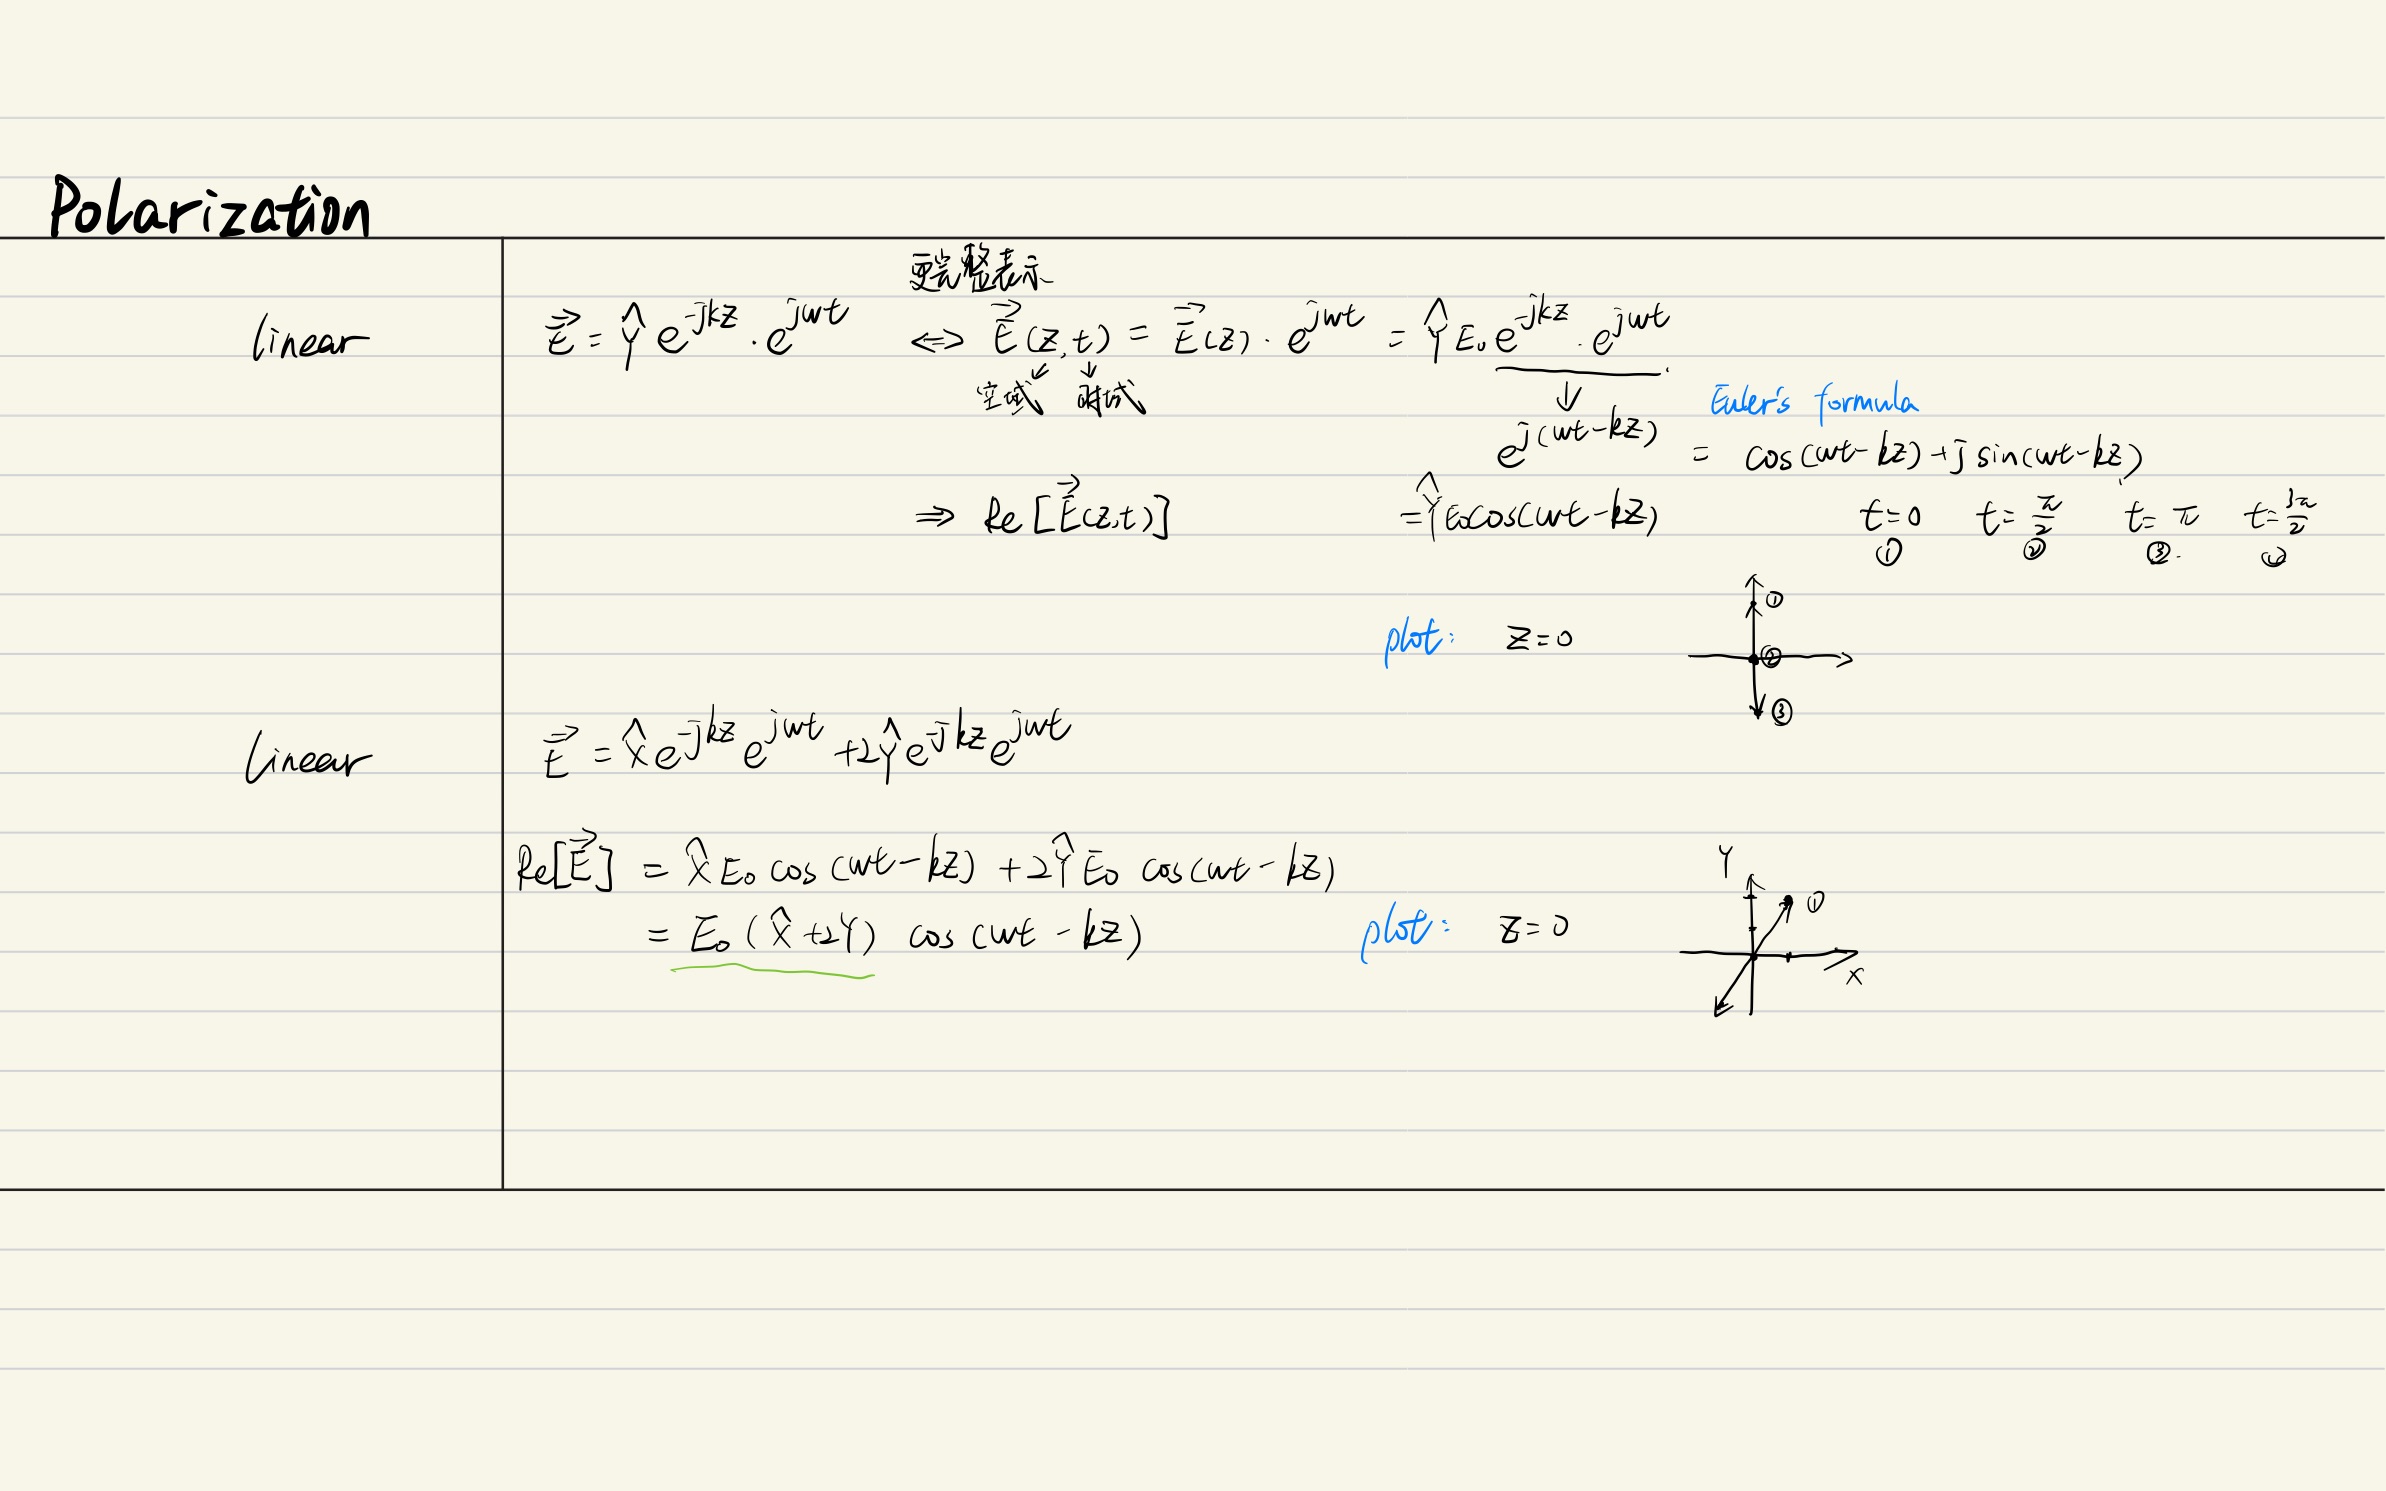 Polarization
更完整表示
linear E⃗ = Ŷ e^{-jkz} · e^{jwt} ⇔ E⃗(z,t) = E⃗(z) · e^{jwt} = Ŷ E₀ e^{-jkz} · e^{jwt}
空域 时域
Euler's formula
e^{j(wt-kz)} = cos(wt-kz)+j sin(wt-kz)
⇒ Re[E⃗(z,t)] = Ŷ E₀ cos(wt-kz) t=0 t=π/2 t=π t=3π/2
① ② ③
plot: z=0
①
②
③
linear E⃗ = X̂ e^{-jkz} e^{jwt} + 2Ŷ e^{-jkz} e^{jwt}
Re[E⃗] = X̂ E₀ cos(wt-kz) + 2Ŷ E₀ cos(wt-kz)
= E₀(X̂+2Y) cos(wt-kz) plot: z=0
Y
①
X